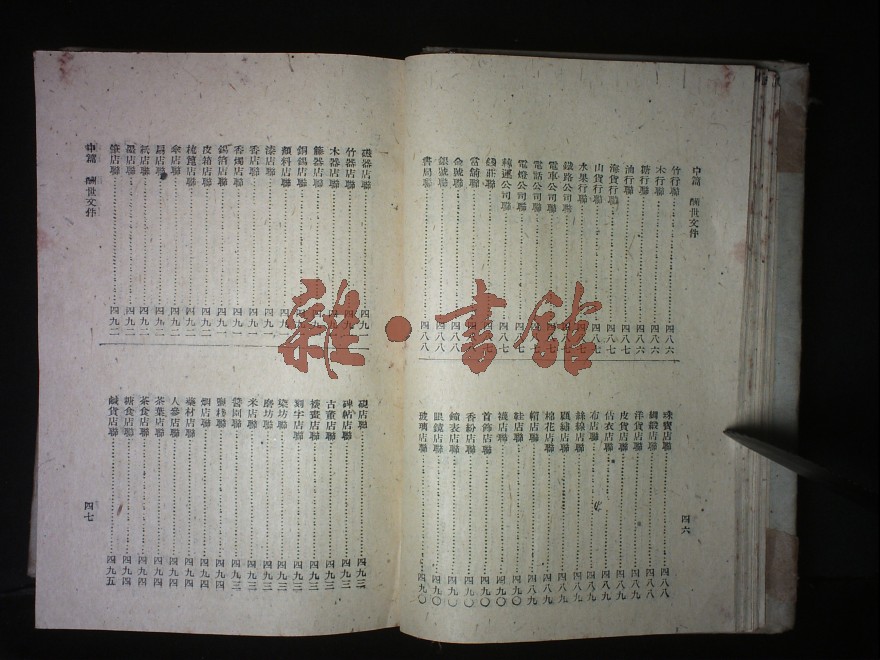 中篇 酬世文件
竹行聯 四八六
木行聯 四八六
糖行聯 四八六
油行聯 四八七
海貨行聯 四八七
山貨行聯 四八七
水果行聯 四八七
鐵路公司聯 四八七
電車公司聯 四八七
電話公司聯
電燈公司聯 四八七
轉運公司聯 四八七
當舖聯
金號聯 四八八
銀號聯 四八八
書局聯 四八八
四六
珠寶店聯 四八八
綢緞店聯 四八八
洋貨店聯 四八九
皮貨店聯 四八九
估衣店聯 四八九
布店聯 四八九
絲線店聯 四八九
顧繡店聯 四八九
棉花店聯 四八九
帽店聯 四八九
鞋店聯 四九〇
襪店聯 四九〇
首飾店聯 四九〇
香粉店聯 四九〇
鐘表店聯 四九〇
眼鏡店聯 四九〇
玻璃店聯 四九〇
磁器店聯 四九一
竹器店聯 四九一
木器店聯
籐器店聯
銅錫店聯
顏料店聯
漆店聯 四九一
香店聯 四九一
香燭店聯 四九一
錫箔店聯 四九一
皮箱店聯
梳篦店聯
傘店聯
扇店聯
紙店聯
墨店聯
筆店聯
中篇 酬世文件
硯店聯
碑帖店聯
古董店聯
裱畫店聯
刻字店聯
染坊聯
磨坊聯
米店聯
醬園聯
鹽棧聯 四九四
烟店聯 四九四
藥材店聯 四九四
人參店聯 四九四
茶葉店聯 四九四
茶食店聯 四九四
糖食店聯 四九四
鹹貨店聯 四九五
四七
雜·書館